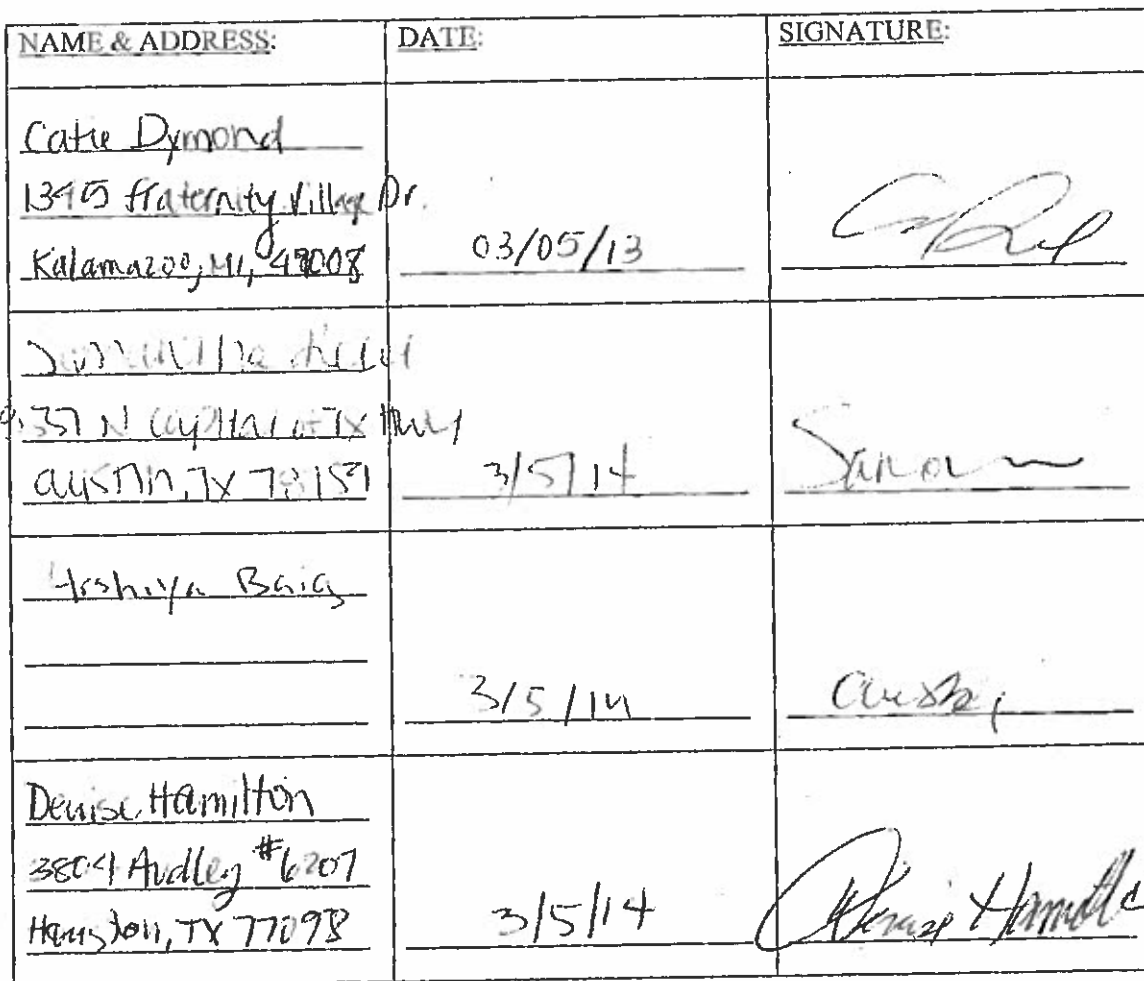 NAME & ADDRESS: DATE: SIGNATURE:
Catie Dymond
1345 Fraternity Village Dr.
Kalamazoo, MI, 49008 03/05/13
N Capital of TX Hwy
austin, TX 3/5/14
Arshiya Baig
3/5/14
Denise Hamilton
3804 Audley #6207
Houston, TX 77098 3/5/14 Denise Hamilto